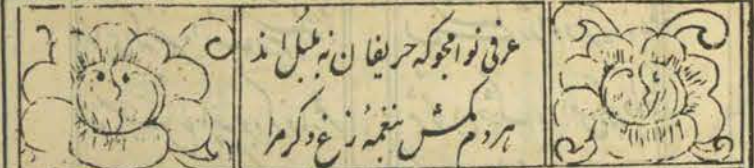 عرفی نوا مجو که حریفان نه بلبل اند
هر دم مکش بنغمهٔ زغ دگر مرا